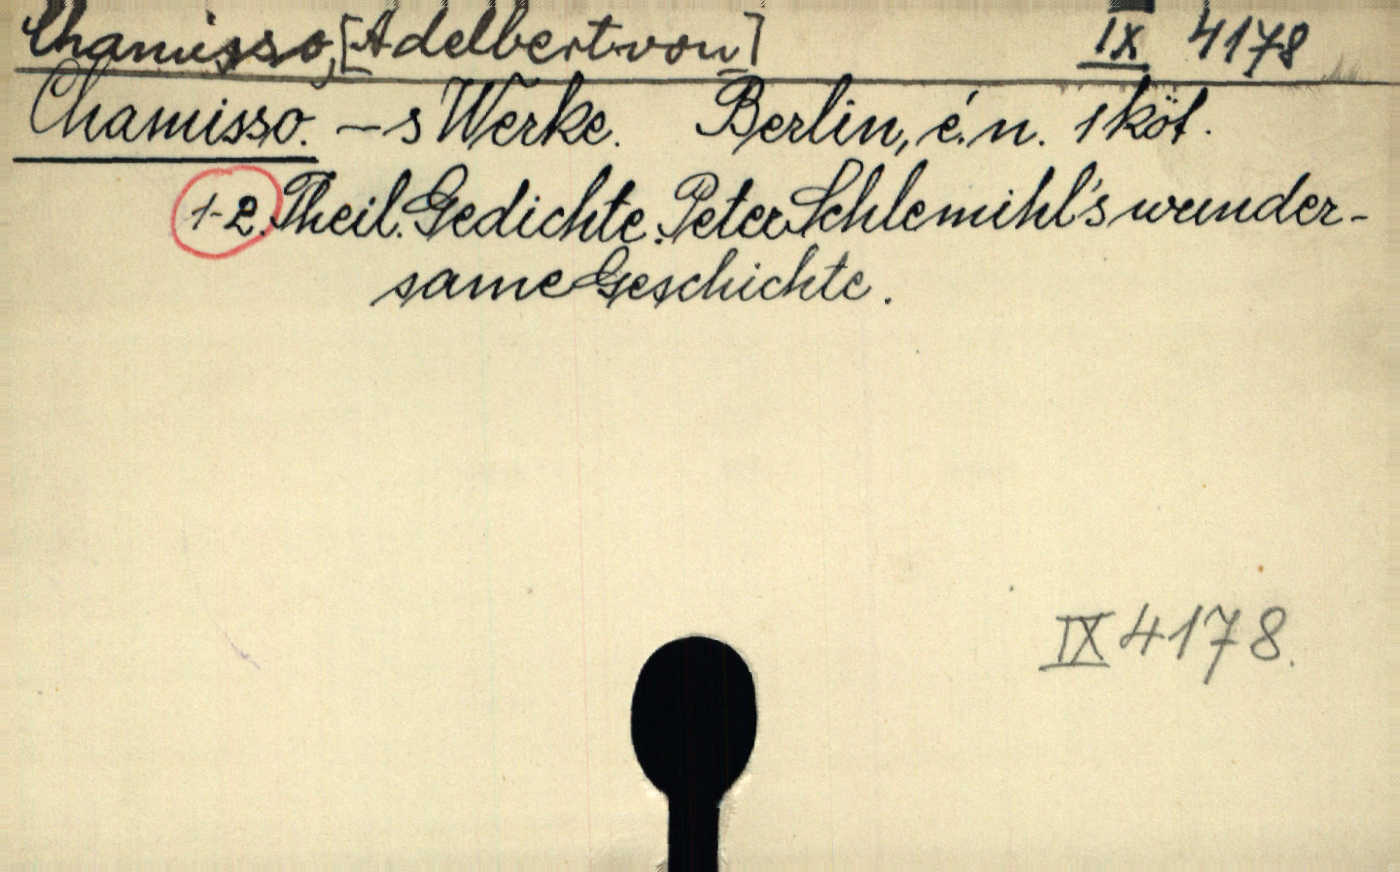 Chamisso, [Adelbert von] IX 4178
Chamisso. – s Werke. Berlin, é. n. 1 köt.
1-2. Theil. Gedichte. Peter Schlemihl's wunder-
same Geschichte.
IX 4178.